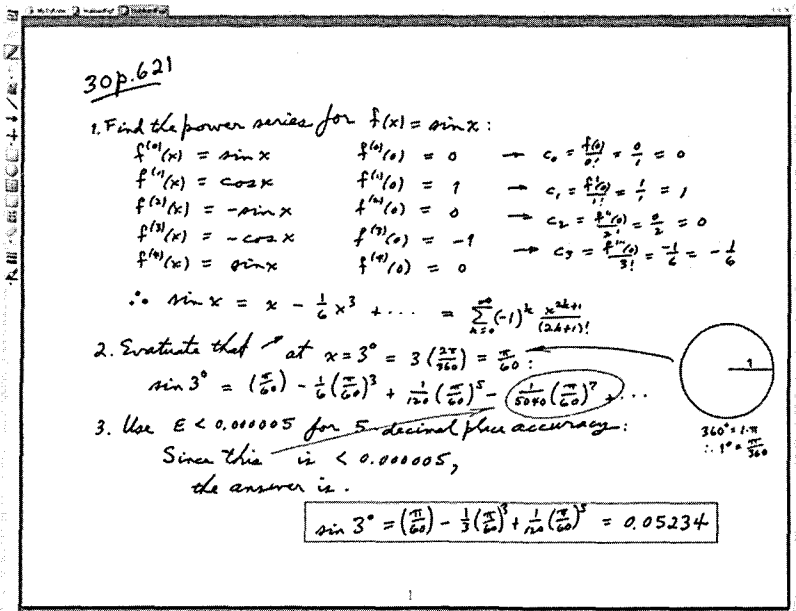 30 p. 621
1. Find the power series for f(x) = sin x :
f^(0)(x) = sin x    f^(0)(0) = 0 → c₀ = f(0)/0! = 0/1 = 0
f^(1)(x) = cos x    f^(1)(0) = 1 → c₁ = f'(0)/1! = 1/1 = 1
f^(2)(x) = -sin x    f^(2)(0) = 0 → c₂ = f''(0)/2! = 0/2 = 0
f^(3)(x) = -cos x    f^(3)(0) = -1 → c₃ = f'''(0)/3! = -1/6 = -1/6
f^(4)(x) = sin x    f^(4)(0) = 0
∴ sin x = x - 1/6 x³ + ··· = ∑_{k=0}^{∞} (-1)^k x^{2k+1}/(2k+1)!
2. Evaluate that ↗ at x = 3° = 3(2π/360) = π/60 :
sin 3° = (π/60) - 1/6 (π/60)³ + 1/120 (π/60)⁵ - 1/5040 (π/60)⁷ + ···
1
360° = 2·π
∴ 1° = π/360
3. Use E < 0.000005 for 5-decimal place accuracy:
Since this is < 0.000005,
the answer is.
sin 3° = (π/60) - 1/3 (π/60)³ + 1/120 (π/60)⁵ = 0.05234
1